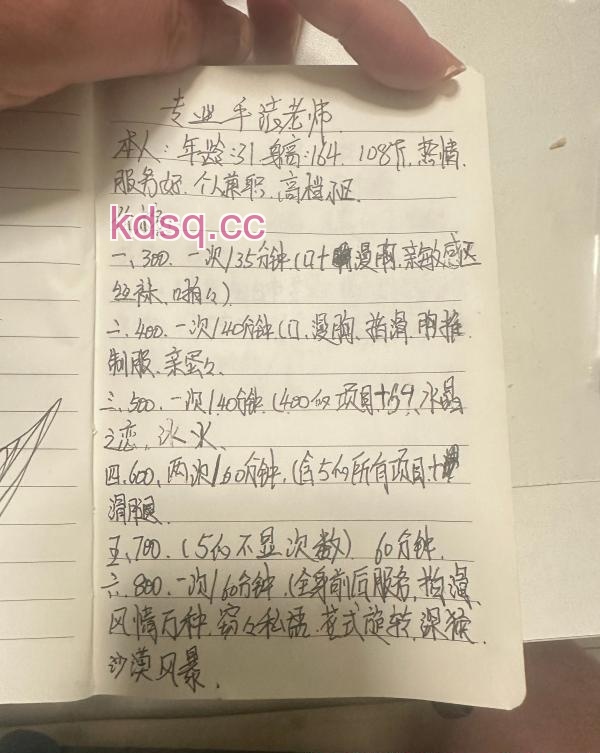 专业手法老师
本人:年龄:31 身高:164. 108斤,热情,
服务好.个人兼职,高档小区.
kdsq.cc
一、300.一次/35分钟(口+漫胸,亲敏感区
丝袜、啪々)
二、400.一次/40分钟(口、漫胸、指滑、胸推
制服、亲蛋々
三、500.一次/40分钟(400的项目+69,水晶
之恋,冰火、
四、600、两次/60分钟,(含5的所有项目+
滑腿
五、700.(5的不显次数) 60分钟.
六、800.一次/60分钟(全身前后服务,指漫
风情万种,窃々私语.花式旋转,深猴
沙漠风暴.